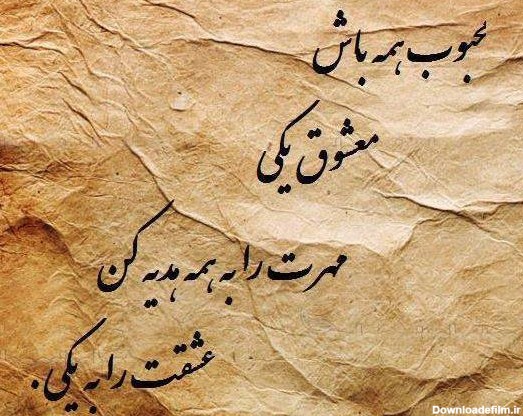 محبوب همه باش
معشوق یکی
مهرت را به همه هدیه کن
عشقت را به یکی.
Downloadefilm.ir